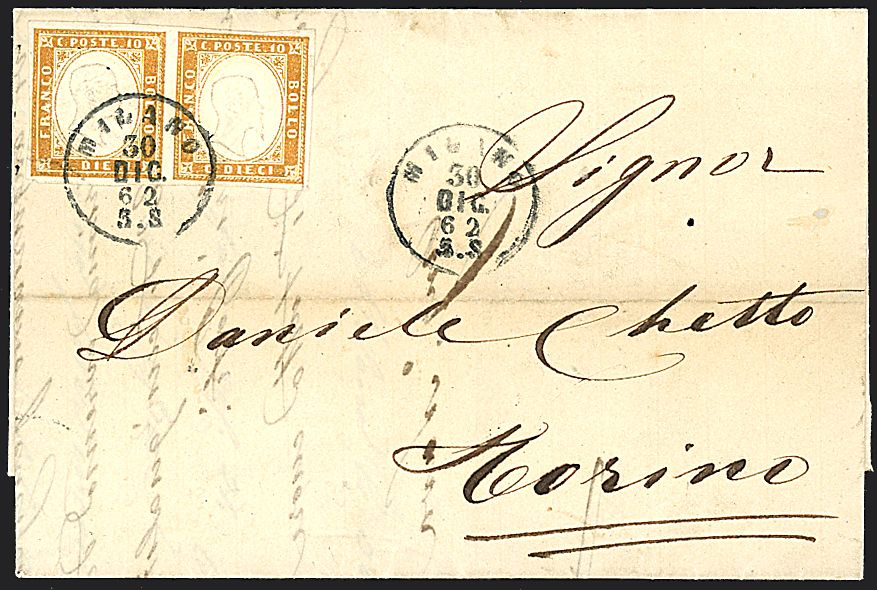 C. POSTE 10
FRANCO
BOLLO
DIE
C. POSTE 10
FRANCO
BOLLO
C. DIECI
MILANO
30
DIC.
62
S.S
MILANO
30
DIC.
62
S.S
Signor
Daniele Chetto
Torino